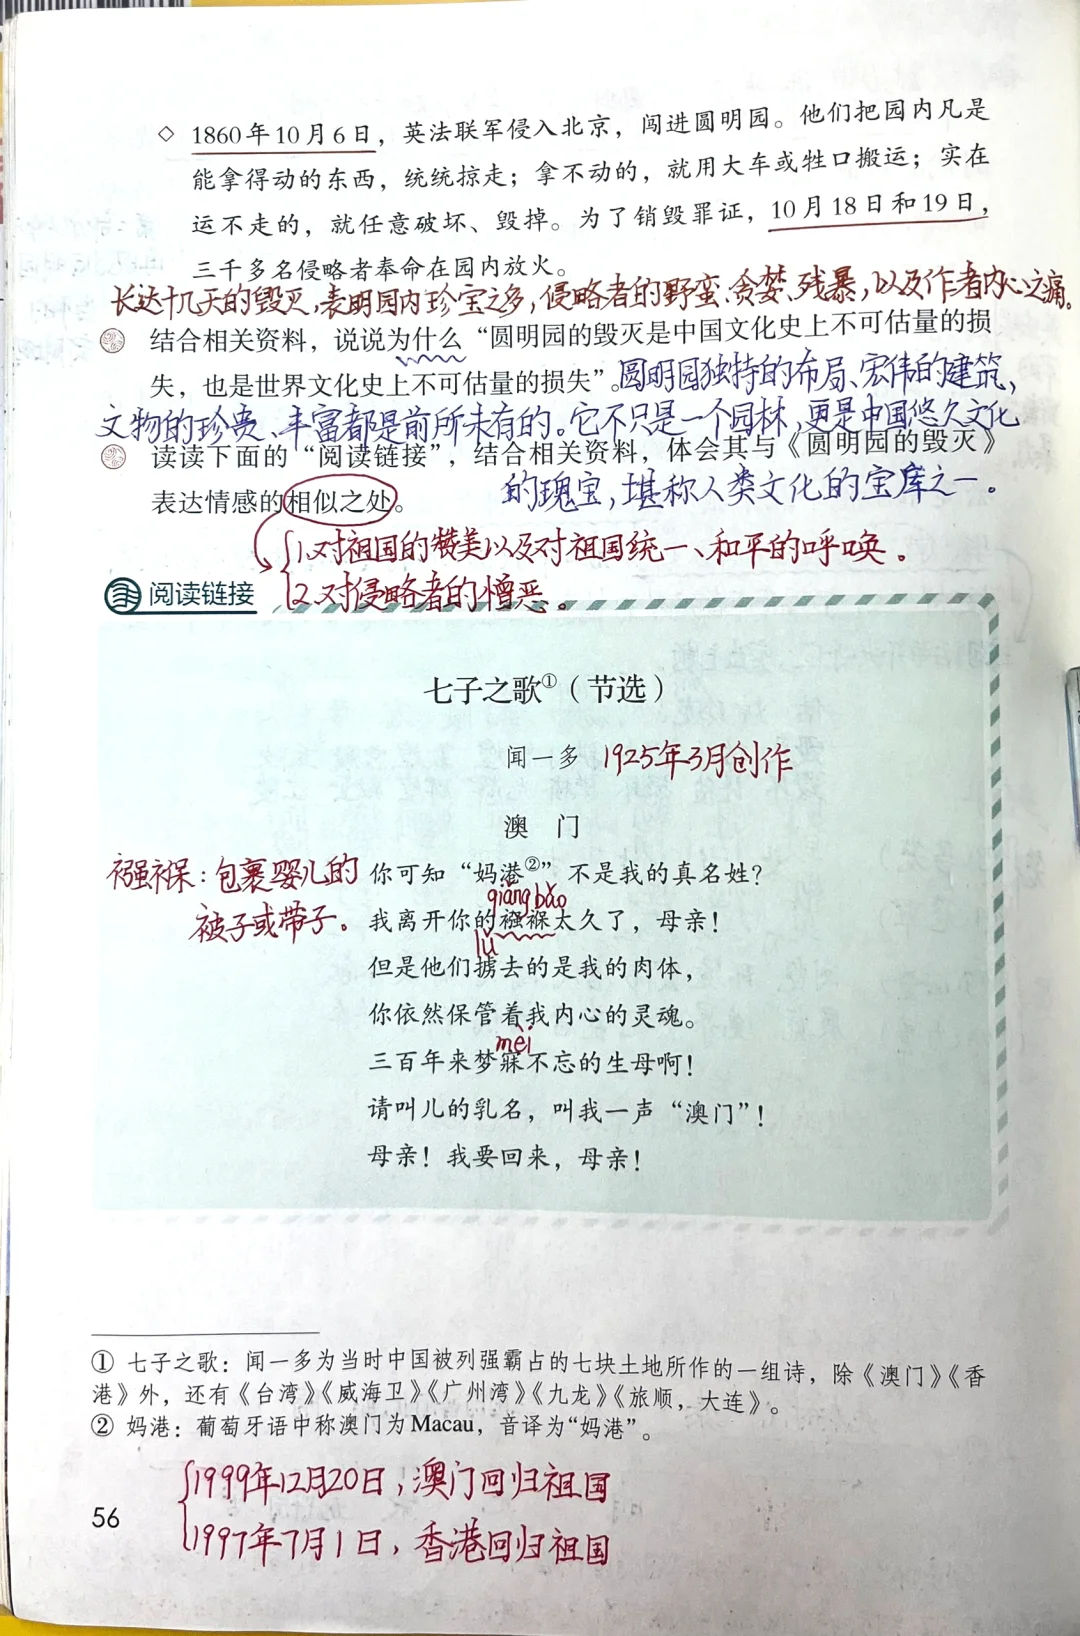 ◇ 1860年10月6日，英法联军侵入北京，闯进圆明园。他们把园内凡是
能拿得动的东西，统统掠走；拿不动的，就用大车或牲口搬运；实在
运不走的，就任意破坏、毁掉。为了销毁罪证，10月18日和19日，
三千多名侵略者奉命在园内放火。
长达十几天的毁灭，表明园内珍宝之多，侵略者的野蛮、贪婪、残暴，以及作者内心之痛。
结合相关资料，说说为什么“圆明园的毁灭是中国文化史上不可估量的损
失，也是世界文化史上不可估量的损失”。圆明园独特的布局、宏伟的建筑，
文物的珍贵、丰富都是前所未有的。它不只是一个园林，更是中国悠久文化
读读下面的“阅读链接”，结合相关资料，体会其与《圆明园的毁灭》
表达情感的相似之处。 的瑰宝，堪称人类文化的宝库之一。
1.对祖国的赞美以及对祖国统一、和平的呼唤。
2.对侵略者的憎恶。
阅读链接
七子之歌①（节选）
闻一多 1925年3月创作
澳 门
襁褓：包裹婴儿的 你可知“妈港②”不是我的真名姓？
qiǎng bǎo
被子或带子。 我离开你的襁褓太久了，母亲！
lǔ
但是他们掳去的是我的肉体，
你依然保管着我内心的灵魂。
mèi
三百年来梦寐不忘的生母啊！
请叫儿的乳名，叫我一声“澳门”！
母亲！我要回来，母亲！
① 七子之歌：闻一多为当时中国被列强霸占的七块土地所作的一组诗，除《澳门》《香
港》外，还有《台湾》《威海卫》《广州湾》《九龙》《旅顺，大连》。
② 妈港：葡萄牙语中称澳门为Macau，音译为“妈港”。
1999年12月20日，澳门回归祖国
56
1997年7月1日，香港回归祖国